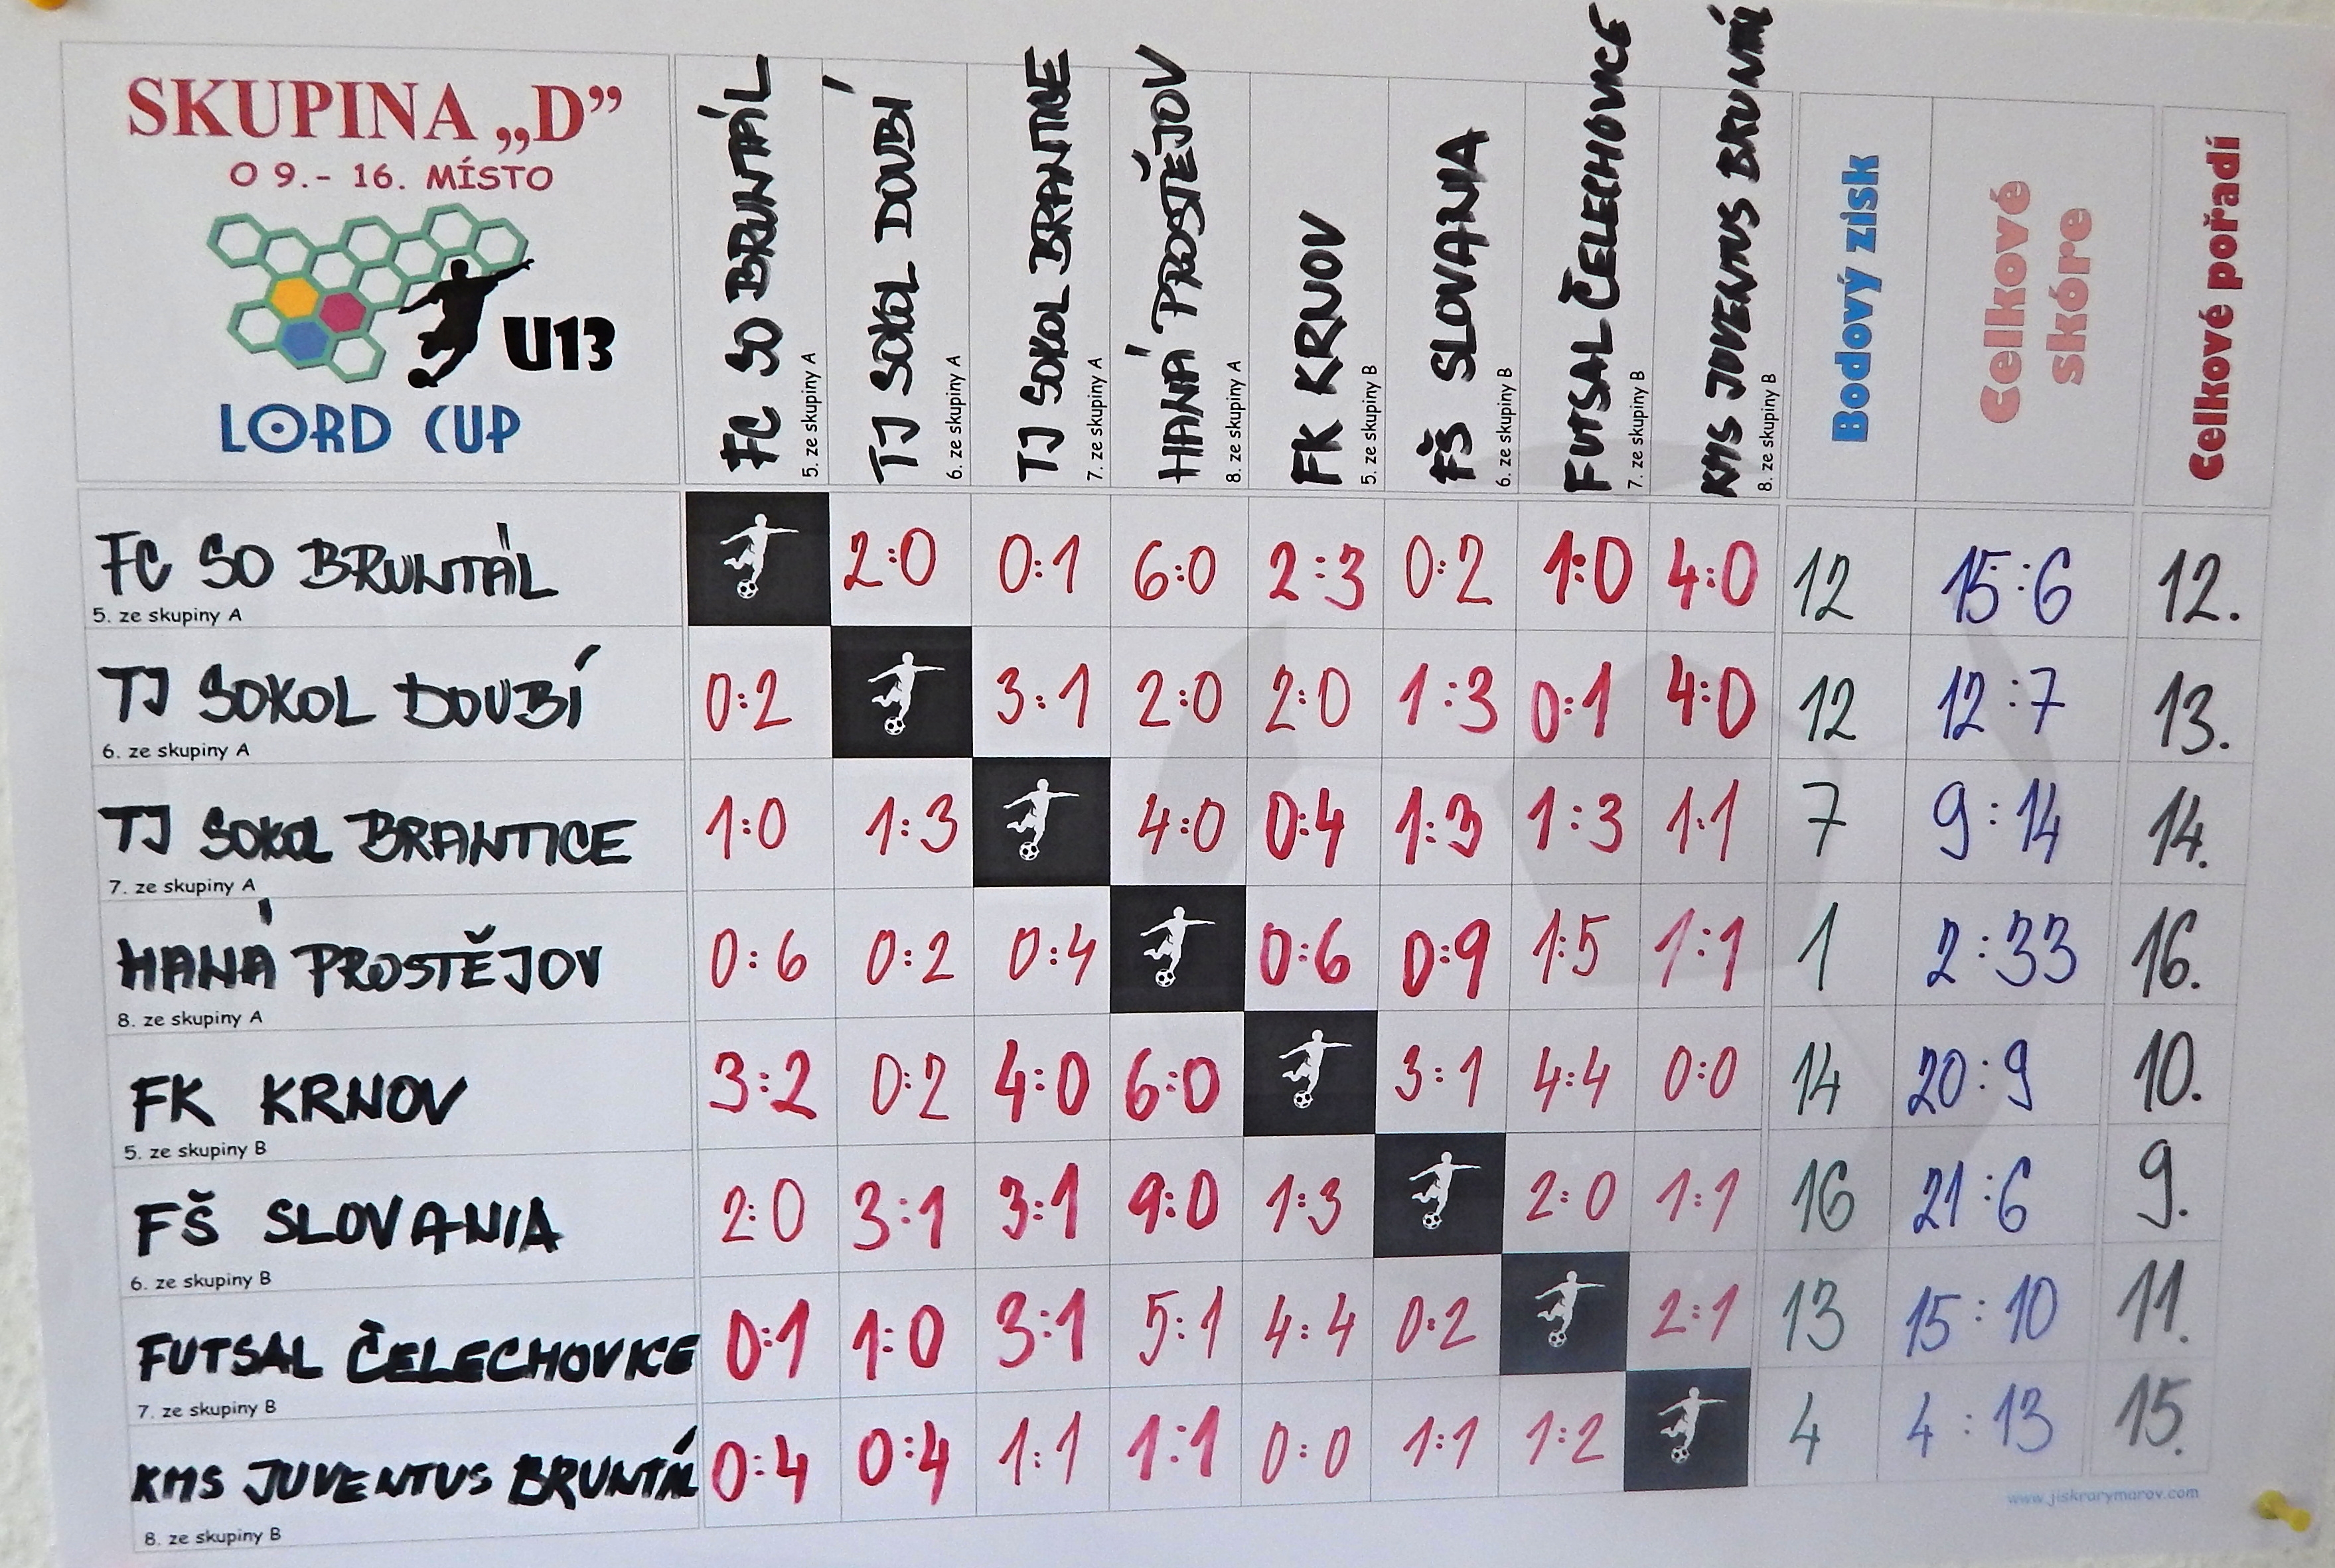 SKUPINA „D”
O 9.- 16. MÍSTO
U13
LORD CUP
FC SO BRUNTÁL
5. ze skupiny A
TJ SOKOL DOUBÍ
6. ze skupiny A
TJ SOKOL BRANTICE
7. ze skupiny A
HANÁ PROSTĚJOV
8. ze skupiny A
FK KRNOV
5. ze skupiny B
FŠ SLOVANIA
6. ze skupiny B
FUTSAL ČELECHOVICE
7. ze skupiny B
KMS JUVENTUS BRUNTÁL
8. ze skupiny B
Bodový zisk
Celkové
skóre
Celkové pořadí
FC SO BRUNTÁL 2:0 0:1 6:0 2:3 0:2 1:0 4:0 12 15:6 12.
5. ze skupiny A
TJ SOKOL DOUBÍ 0:2 3:1 2:0 2:0 1:3 0:1 4:0 12 12:7 13.
6. ze skupiny A
TJ SOKOL BRANTICE 1:0 1:3 4:0 0:4 1:3 1:3 1:1 7 9:14 14.
7. ze skupiny A
HANÁ PROSTĚJOV 0:6 0:2 0:4 0:6 0:9 1:5 1:1 1 2:33 16.
8. ze skupiny A
FK KRNOV 3:2 0:2 4:0 6:0 3:1 4:4 0:0 14 20:9 10.
5. ze skupiny B
FŠ SLOVANIA 2:0 3:1 3:1 9:0 1:3 2:0 1:1 16 21:6 9.
6. ze skupiny B
FUTSAL ČELECHOVICE 0:1 1:0 3:1 5:1 4:4 0:2 2:1 13 15:10 11.
7. ze skupiny B
KMS JUVENTUS BRUNTÁL 0:4 0:4 1:1 1:1 0:0 1:1 1:2 4 4:13 15.
8. ze skupiny B
www.jiskrarymarov.com